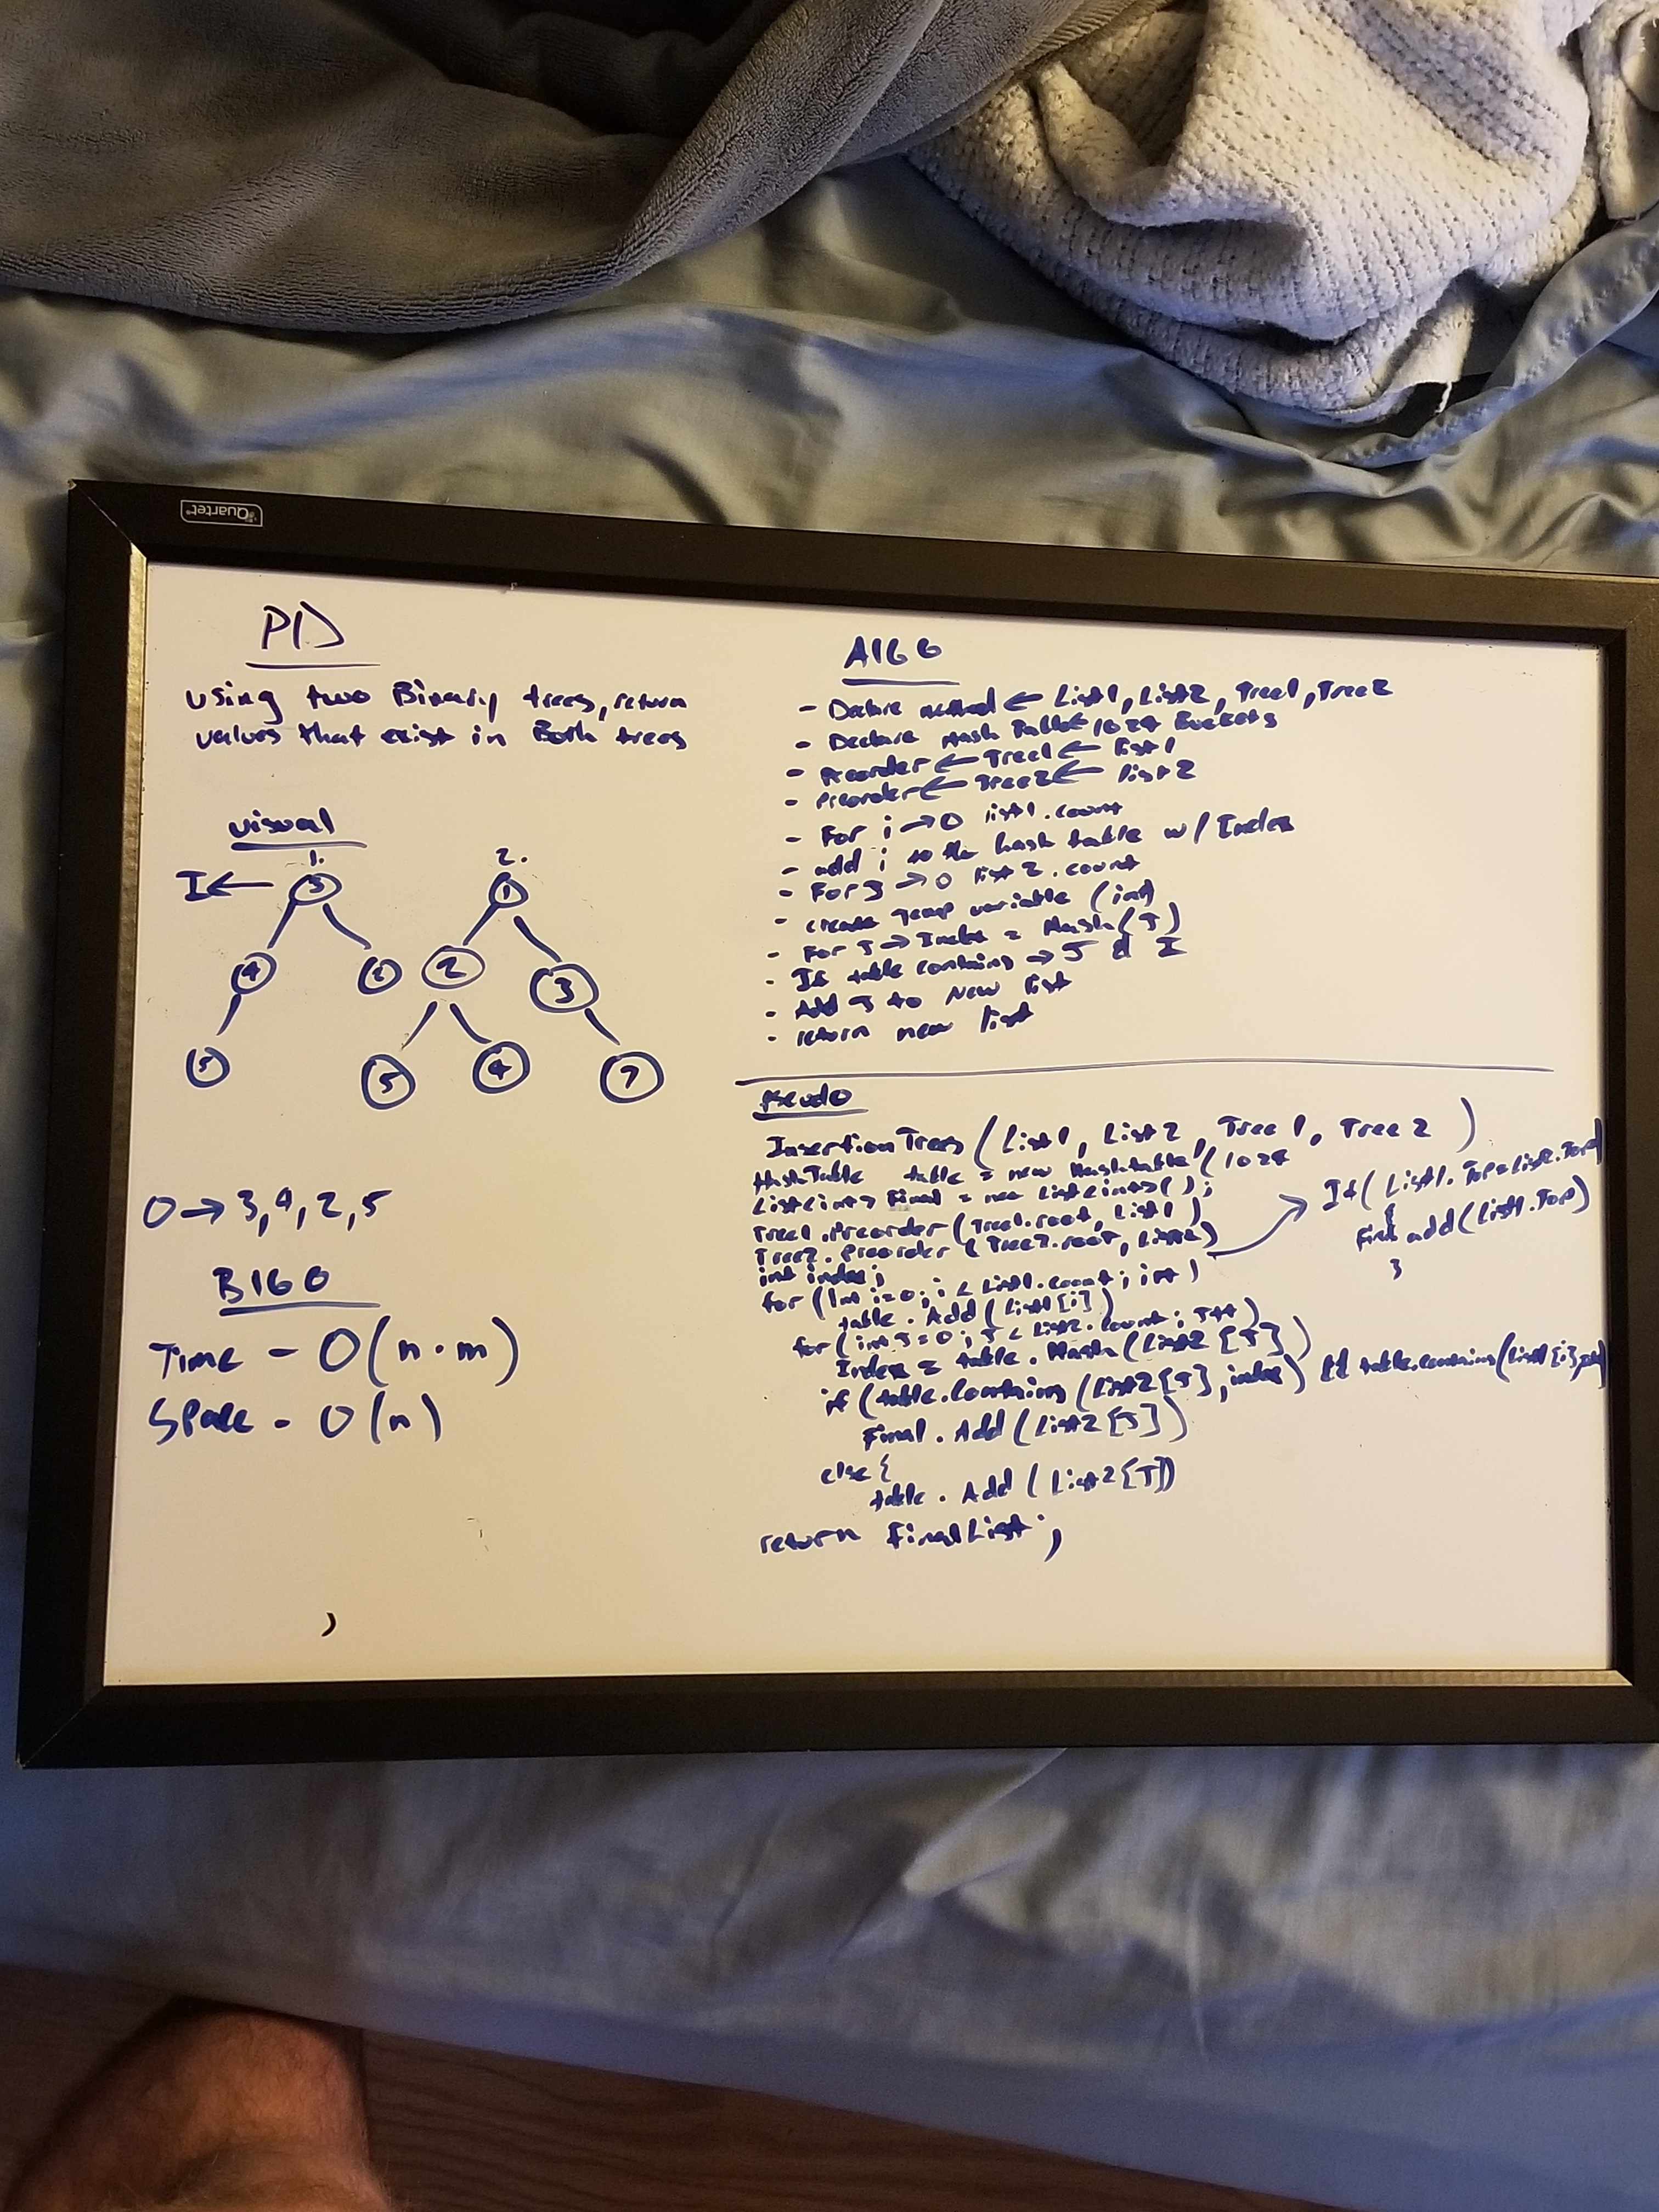 Quartet
PD
using two Binary trees, return
values that exist in Both trees
visual
1.
2.
I ← 3
1
4
2
3
5
5
4
7
O → 3, 4, 2, 5
BIG O
Time - O(n·m)
Space - O(n)
AlGO
- Declare method ← List1, List2, Tree1, Tree2
- Declare Hash Table ← 1024 Buckets
- Preorder ← Tree1 ← list1
- Preorder ← Tree2 ← list2
- For i → 0 list1.count
- add i to the hash table w/ Index
- For J → 0 list2.count
- create temp variable (int)
- For J → Index = Hash(J)
- If table contains → J & I
- Add J to New list
- return new list
Pseudo
InsertionTrees (List1, List2, Tree1, Tree2)
HashTable table = new Hashtable (1024
List<int> Final = new List<int>();
Tree1.Preorder (Tree1.root, List1)
Tree2.Preorder (Tree2.root, List2)
If (List1.Top=List2.Top)
{
add(List1.Top)
}
int index;
for (Int i=0; i < List1.count; i++)
table.Add(List1[i])
for (int J=0; J < List2.count; J++)
Index = table.Hash(List2[J])
if (table.contains(List2[J], index) && table.contains(List1[i],
Final.Add(List2[J])
else {
table.Add(List2[J])
return finalList;